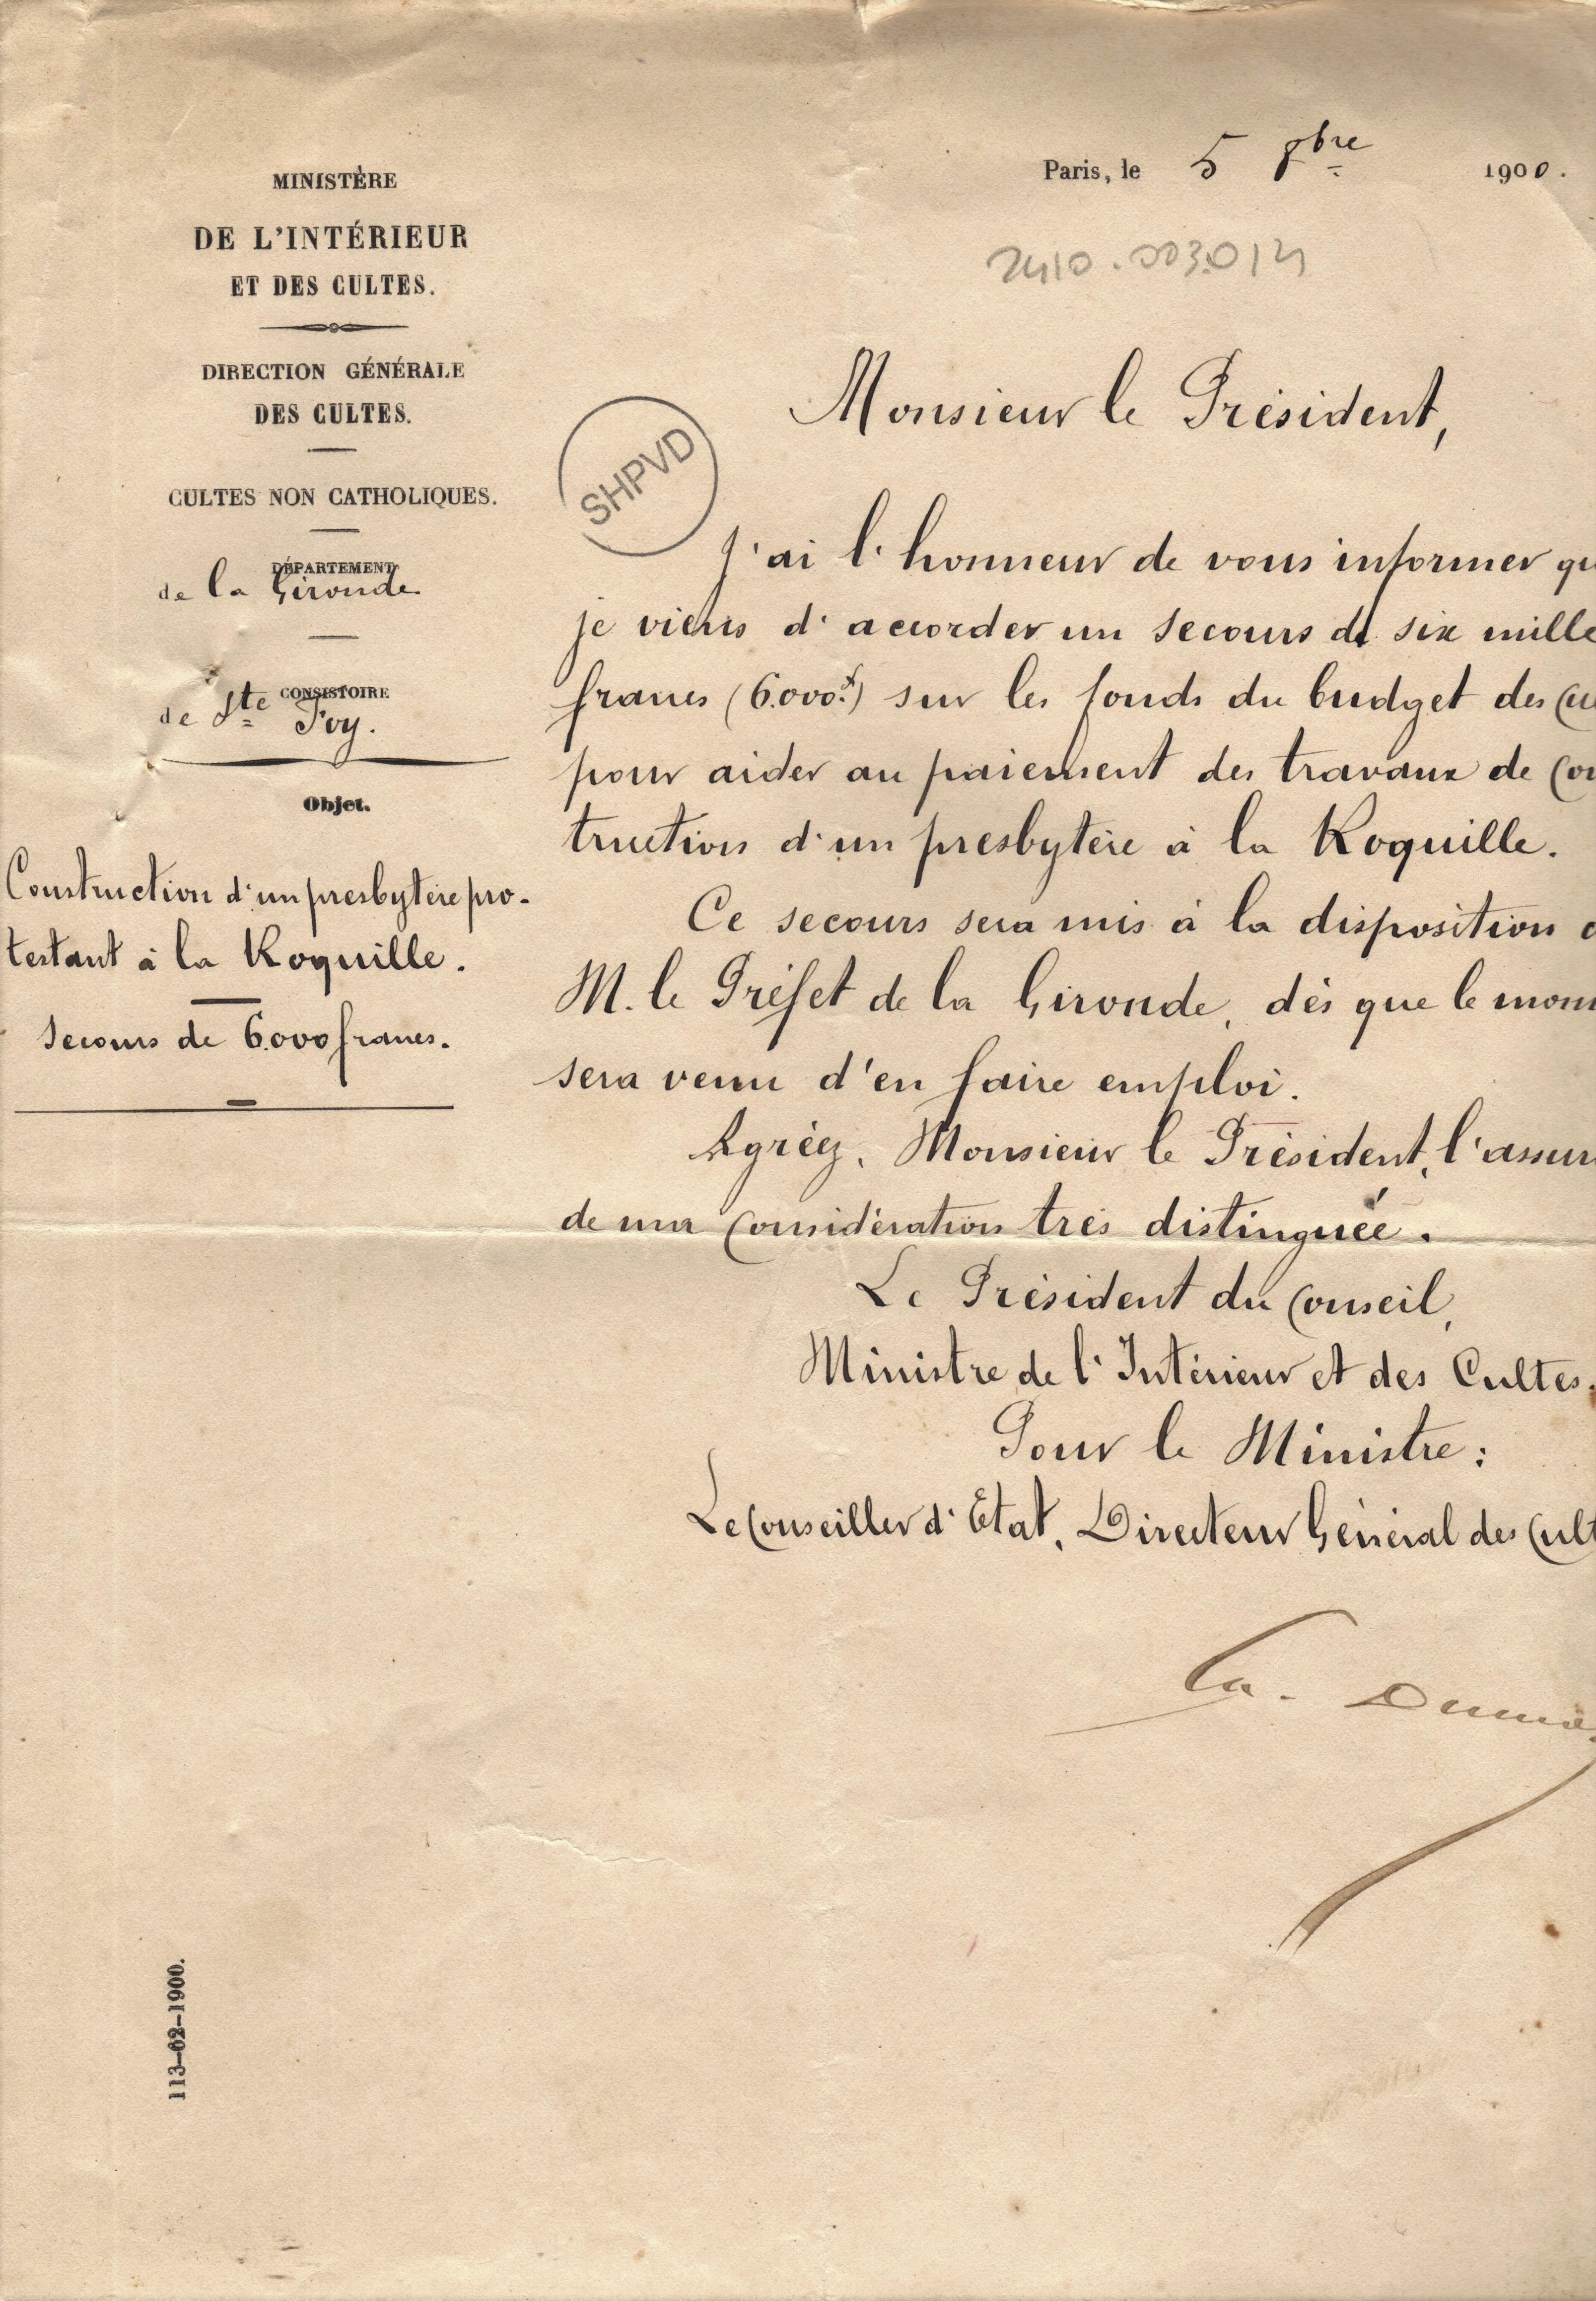 MINISTÈRE
DE L'INTÉRIEUR
ET DES CULTES.
DIRECTION GÉNÉRALE
DES CULTES.
CULTES NON CATHOLIQUES.
DÉPARTEMENT
de la Gironde
CONSISTOIRE
de Ste Foy.
Objet.
Construction d'un presbytère pro-
testant à la Roquille.
Secours de 6.000 francs.
113-62-1900.
Paris, le 5 8bre 1900.
2410.003.014
SHPVD
Monsieur le Président,
J'ai l'honneur de vous informer qu
je viens d'accorder un secours de six mille
francs (6.000f) sur les fonds du budget des Cu
pour aider au paiement des travaux de Con
truction d'un presbytère à la Roquille.
Ce secours sera mis à la disposition d
M. le Préfet de la Gironde, dès que le mom
sera venu d'en faire emploi.
Agréez, Monsieur le Président, l'assur
de ma considération très distinguée.
Le Président du Conseil,
Ministre de l'Intérieur et des Cultes.
Pour le Ministre:
Le Conseiller d'Etat, Directeur Général des Cult